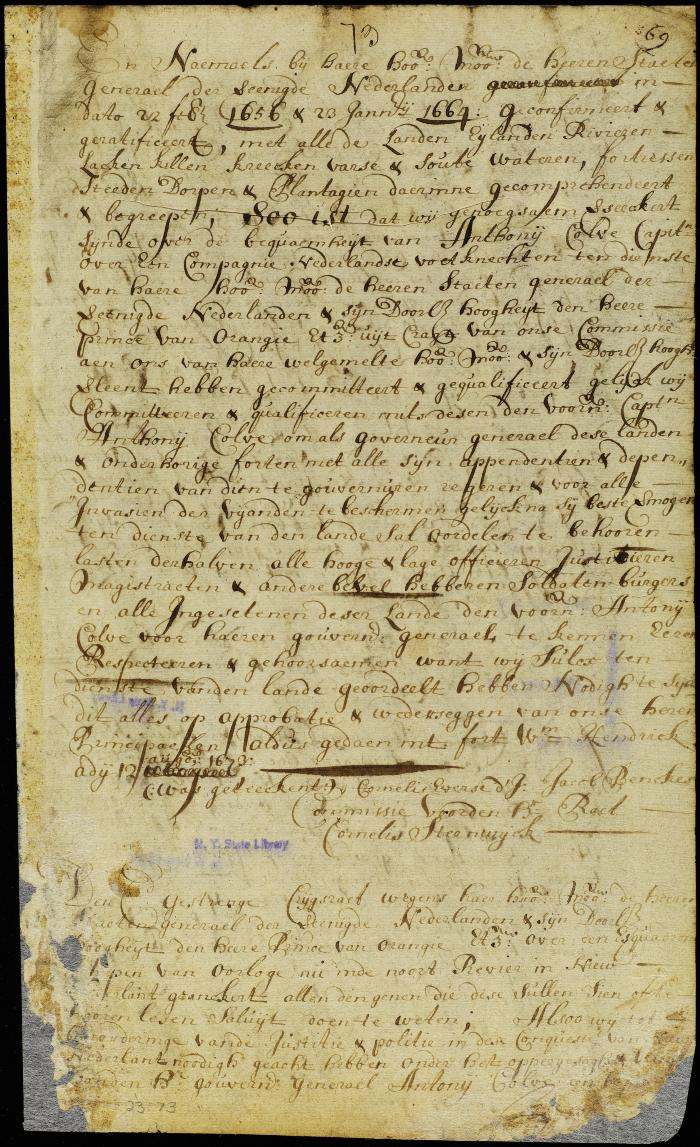 73
69
En Naemaels by haere hoo: Moo: de heeren Staeten
generael der Veenigde Nederlanden in
dato 22 1656 & 23 Jannrij 1664: geconfirmeert &
geratificeert, met alle de Landen Eylanden Rivieren
Lacken killen kreecken varse & soute wateren, fortressen
Steeden Dorpen & Plantagien daerinne gecomprehendeert
& begreepen, Soo ist dat wij genoegsaem verseekert
synde over de bequaemheyt van Anthonij Colve Capitn
over Een Compagnie Nederlandse voetknechten ten dienste
van haere hoo: Moo: de heeren Staeten generael der
Veenigde Nederlanden & sijn Doorl: hoogheyt den heere
prince van Orangie Etza: uijt Cragt van onse Commissie
aen ons van haere welgemelte hoo: Moo: & sijn Doorl: hoogh:
verleent hebben gecommitteert & gequalificeert gelijck wij
Committeeren & qualificeren mits desen den voorn: Captn
Anthonij Colve, om als governeur generael dese landen
& onderhorige forten met alle sijn appendentien & depen,,
dentien van dien te gouverneren regeren & voor alle
Invasien der vyanden te beschermen gelijck na sij beste vermogen
ten dienste van den lande sal oordelen te behooren
lasten derhalven alle hooge & lage officieren Justicieren
Magistraeten & andere bevel hebberen Soldaten burgers
en alle Ingesetenen deser Lande den voorn: Antonij
Colve voor haeren gouvernr: generael, te kennen Eeren
Respecteeren & gehoorsaemen want wy Sulcx ten
dienste vanden lande geoordeelt hebben Nodigh te syn
dit alles op approbatie & wederseggen van onse heren
Principaelen Aldus gedaen int fort Wm Hendrick
ady 12 augs: 1673:
(was geteeckent) Cornelis Everse d'J: Jacob Benckes
Commissie voorden Hr: Raet
Cornelis Steenwyck
N. Y. State Library
Den E: gestrenge Crijgsraet wegens haer hoo: Moo: de heeren
Staeten generael der Veenigde Nederlanden & sijn Doorl:
hoogheyt den heere Prince van orangie Etza: over een Esquadron
Schepen van Oorloge nu inde noort Revier in Nieu
allen den genen die dese Sullen Sien ofte
hooren lesen Saluijt doen te weten, Alsoo wy tot
vorderinge vande Justitie & politie in dese Conqueste van Nieu
Nederlant noodigh geacht hebben onder het oppergesagh &
vanden Hr: gouvernr: generael Antony Colve
23-73